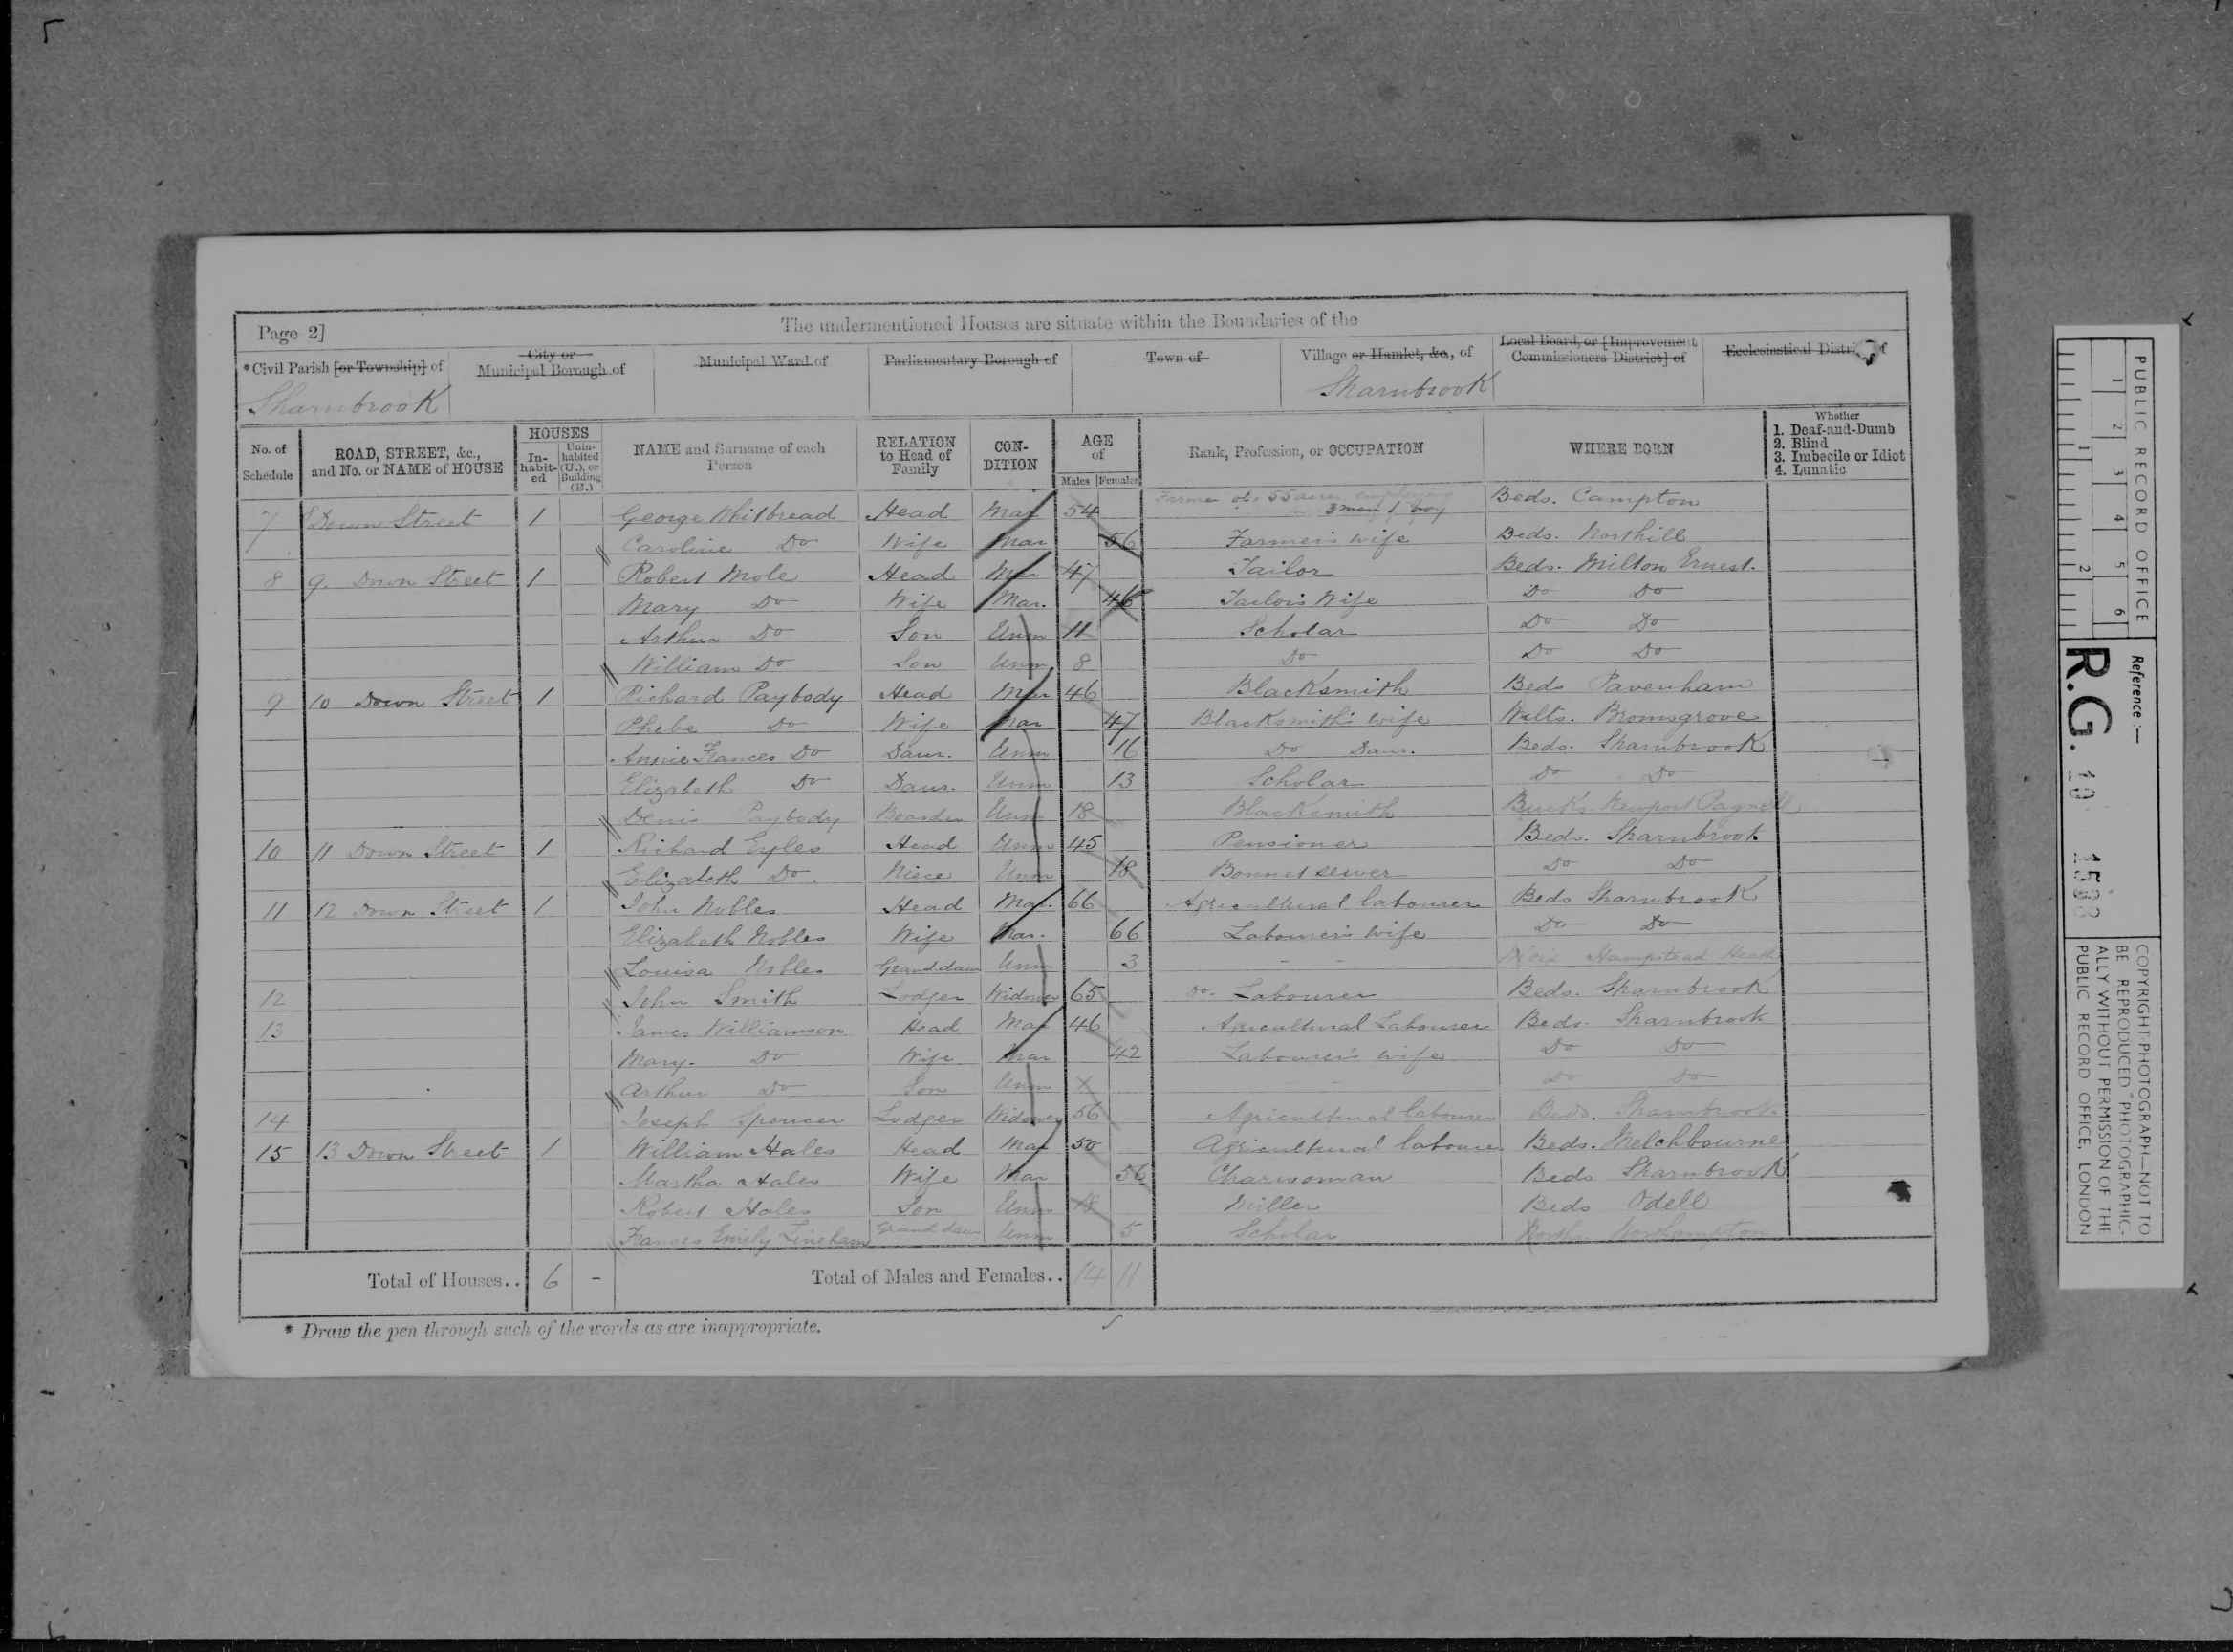 Page 2]
The undermentioned Houses are situate within the Boundaries of the
*Civil Parish [or Township] of
City or Municipal Borough of
Municipal Ward of
Parliamentary Borough of
Town of
Village or Hamlet, &c., of
Local Board, or [Improvement Commissioners District] of
Ecclesiastical District of
Sharnbrook
Sharnbrook
No. of Schedule
ROAD, STREET, &c., and No. or NAME of HOUSE
HOUSES
In-habit-ed
Unin-habited (U.), or Building (B.)
NAME and Surname of each Person
RELATION to Head of Family
CON-DITION
AGE of
Males Females
Rank, Profession, or OCCUPATION
WHERE BORN
Whether
1. Deaf-and-Dumb
2. Blind
3. Imbecile or Idiot
4. Lunatic
7 8 Down Street 1 George Whitbread Head Mar 54 Farmer of 55 acres employing 3 men 1 boy Beds. Campton
Caroline Do Wife Mar 56 Farmer's wife Beds. Northill
8 9. Down Street 1 Robert Mole Head Mar 47 Tailor Beds. Milton Ernest.
Mary Do Wife Mar. 46 Tailor's Wife Do Do
Arthur Do Son Unm 11 Scholar Do Do
William Do Son Unm 8 Do Do Do
9 10 Down Street 1 Richard Paybody Head Mar 46 Blacksmith Beds Pavenham
Phebe Do Wife Mar 47 Blacksmith's wife Bromsgrove
Annie Frances Do Daur. Unm 16 Do Daur. Beds. Sharnbrook
Elizabeth Do Daur. Unm 13 Scholar Do Do
Denis Paybody Boarder Unm 18 Blacksmith Bucks Newport Pagnell
10 11 Down Street 1 Richard Eyles Head Unm 45 Pensioner Beds. Sharnbrook
Elizabeth Do. Niece Unm 18 Bonnet sewer Do Do
11 12 Down Street 1 John Nobles Head Mar. 66 Agricultural labourer Beds Sharnbrook
Elizabeth Nobles Wife Mar. 66 Labourer's wife Do Do
Louisa Nobles Grand daur Unm 3 - - Hampstead Heath
12 John Smith Lodger Widower 65 Do. Labourer Beds. Sharnbrook
13 James Williamson Head Mar 46 Agricultural Labourer Beds. Sharnbrook
Mary. Do Wife Mar 42 Labourer's wife Do Do
Arthur Do Son Unm Do Do
14 Joseph Spencer Lodger Widower 56 Agricultural labourer Beds. Sharnbrook
15 13 Down Street 1 William Hales Head Mar 50 Agricultural labourer Beds. Melchbourne
Martha Hales Wife Mar 56 Charwoman Beds Sharnbrook
Robert Hales Son Unm 18 Miller Beds Odell
Frances Emily Lineham Grand daur Unm 5 Scholar Northampton
Total of Houses.. 6 -
Total of Males and Females.. 14 11
* Draw the pen through such of the words as are inappropriate.
PUBLIC RECORD OFFICE
1 2 3 4 5 6
1 2
Reference :—
R.G. 10
COPYRIGHT PHOTOGRAPH—NOT TO BE REPRODUCED PHOTOGRAPHIC-ALLY WITHOUT PERMISSION OF THE PUBLIC RECORD OFFICE, LONDON